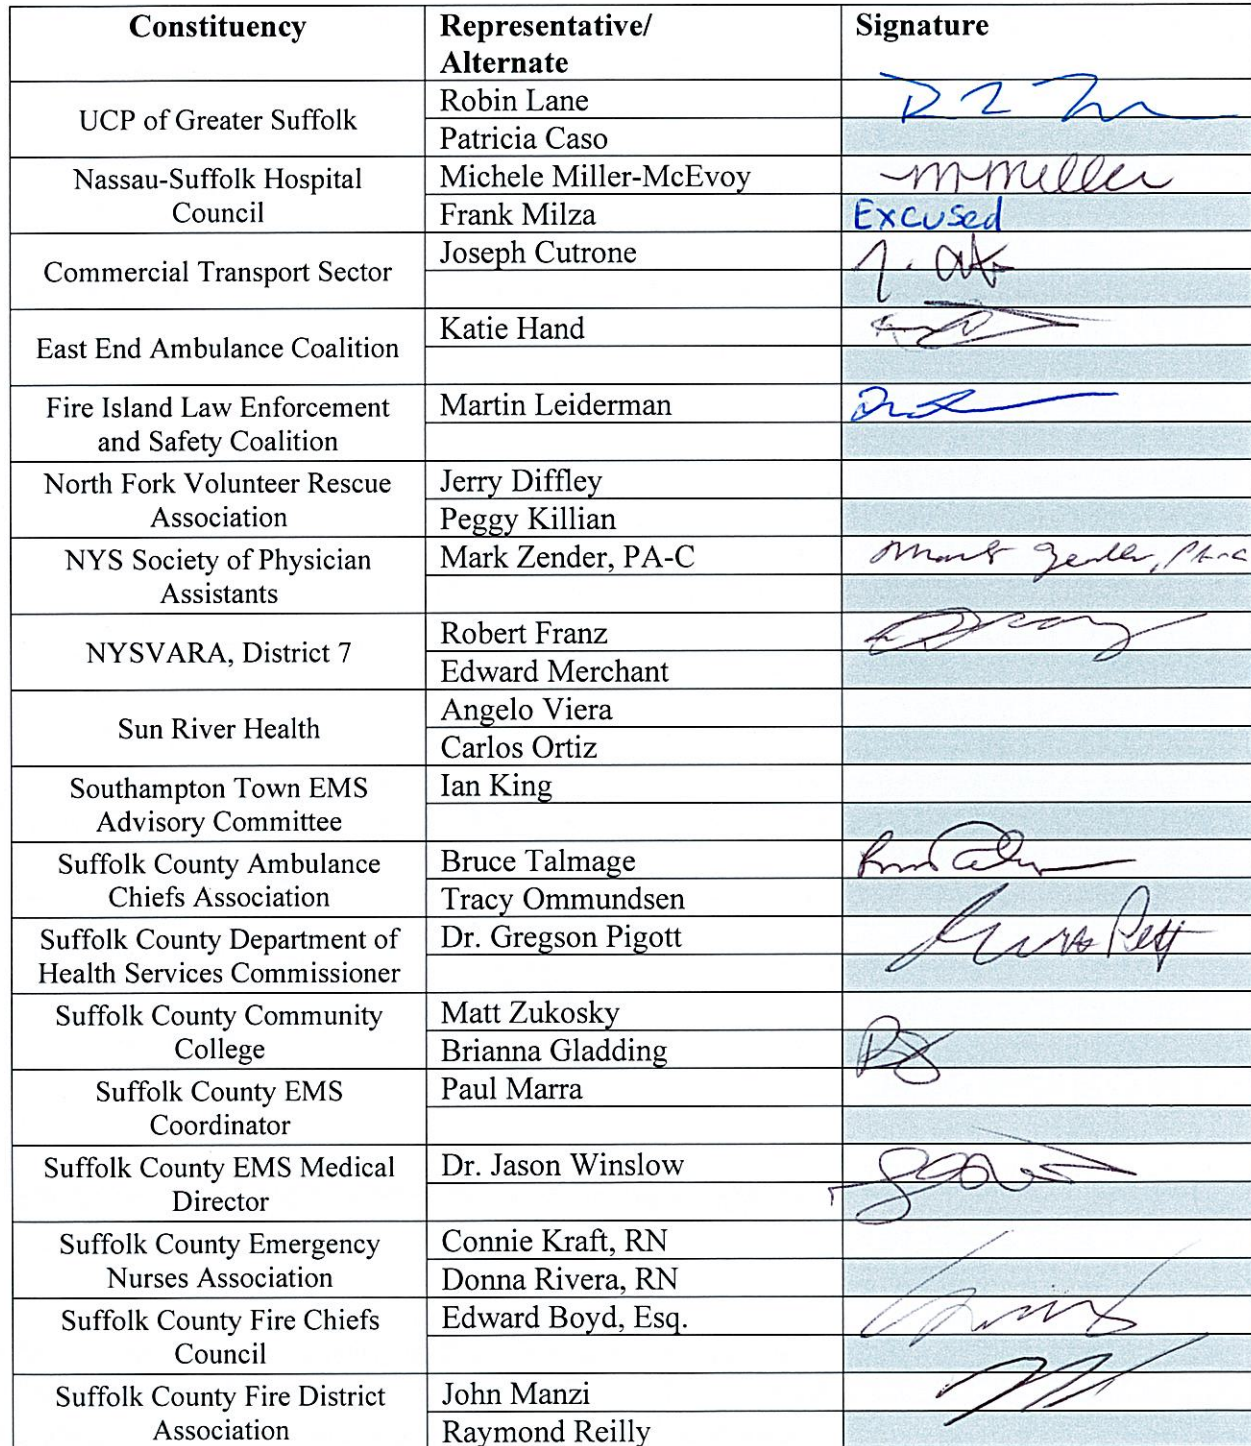 Constituency Representative/ Signature
Alternate
UCP of Greater Suffolk
Robin Lane
Patricia Caso
Nassau-Suffolk Hospital
Council
Michele Miller-McEvoy M Miller
Frank Milza Excused
Commercial Transport Sector
Joseph Cutrone
East End Ambulance Coalition
Katie Hand
Fire Island Law Enforcement
and Safety Coalition
Martin Leiderman
North Fork Volunteer Rescue
Association
Jerry Diffley
Peggy Killian
NYS Society of Physician
Assistants
Mark Zender, PA-C Mark Zender, PA-C
NYSVARA, District 7
Robert Franz
Edward Merchant
Sun River Health
Angelo Viera
Carlos Ortiz
Southampton Town EMS
Advisory Committee
Ian King
Suffolk County Ambulance
Chiefs Association
Bruce Talmage
Tracy Ommundsen
Suffolk County Department of
Health Services Commissioner
Dr. Gregson Pigott
Suffolk County Community
College
Matt Zukosky
Brianna Gladding
Suffolk County EMS
Coordinator
Paul Marra
Suffolk County EMS Medical
Director
Dr. Jason Winslow
Suffolk County Emergency
Nurses Association
Connie Kraft, RN
Donna Rivera, RN
Suffolk County Fire Chiefs
Council
Edward Boyd, Esq.
Suffolk County Fire District
Association
John Manzi
Raymond Reilly